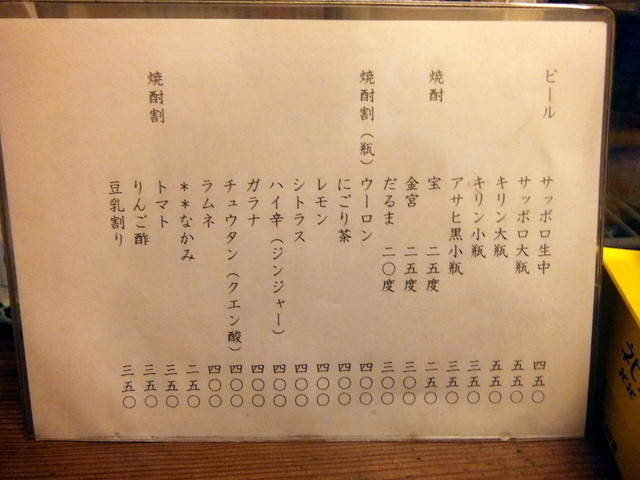 ビール
サッポロ生中 四五〇
サッポロ大瓶 五五〇
キリン大瓶 五五〇
キリン小瓶 三五〇
アサヒ黒小瓶 三五〇
焼酎
宝 二五度 二五〇
金宮 二五度 三〇〇
だるま 二〇度 三〇〇
焼酎割(瓶)
ウーロン 四〇〇
にごり茶 四〇〇
レモン 四〇〇
シトラス 四〇〇
ハイ辛(ジンジャー) 四〇〇
ガラナ 四〇〇
チュウタン(クエン酸) 四〇〇
ラムネ 四〇〇
**なかみ 二五〇
焼酎割
トマト 三五〇
りんご酢 三五〇
豆乳割り 三五〇